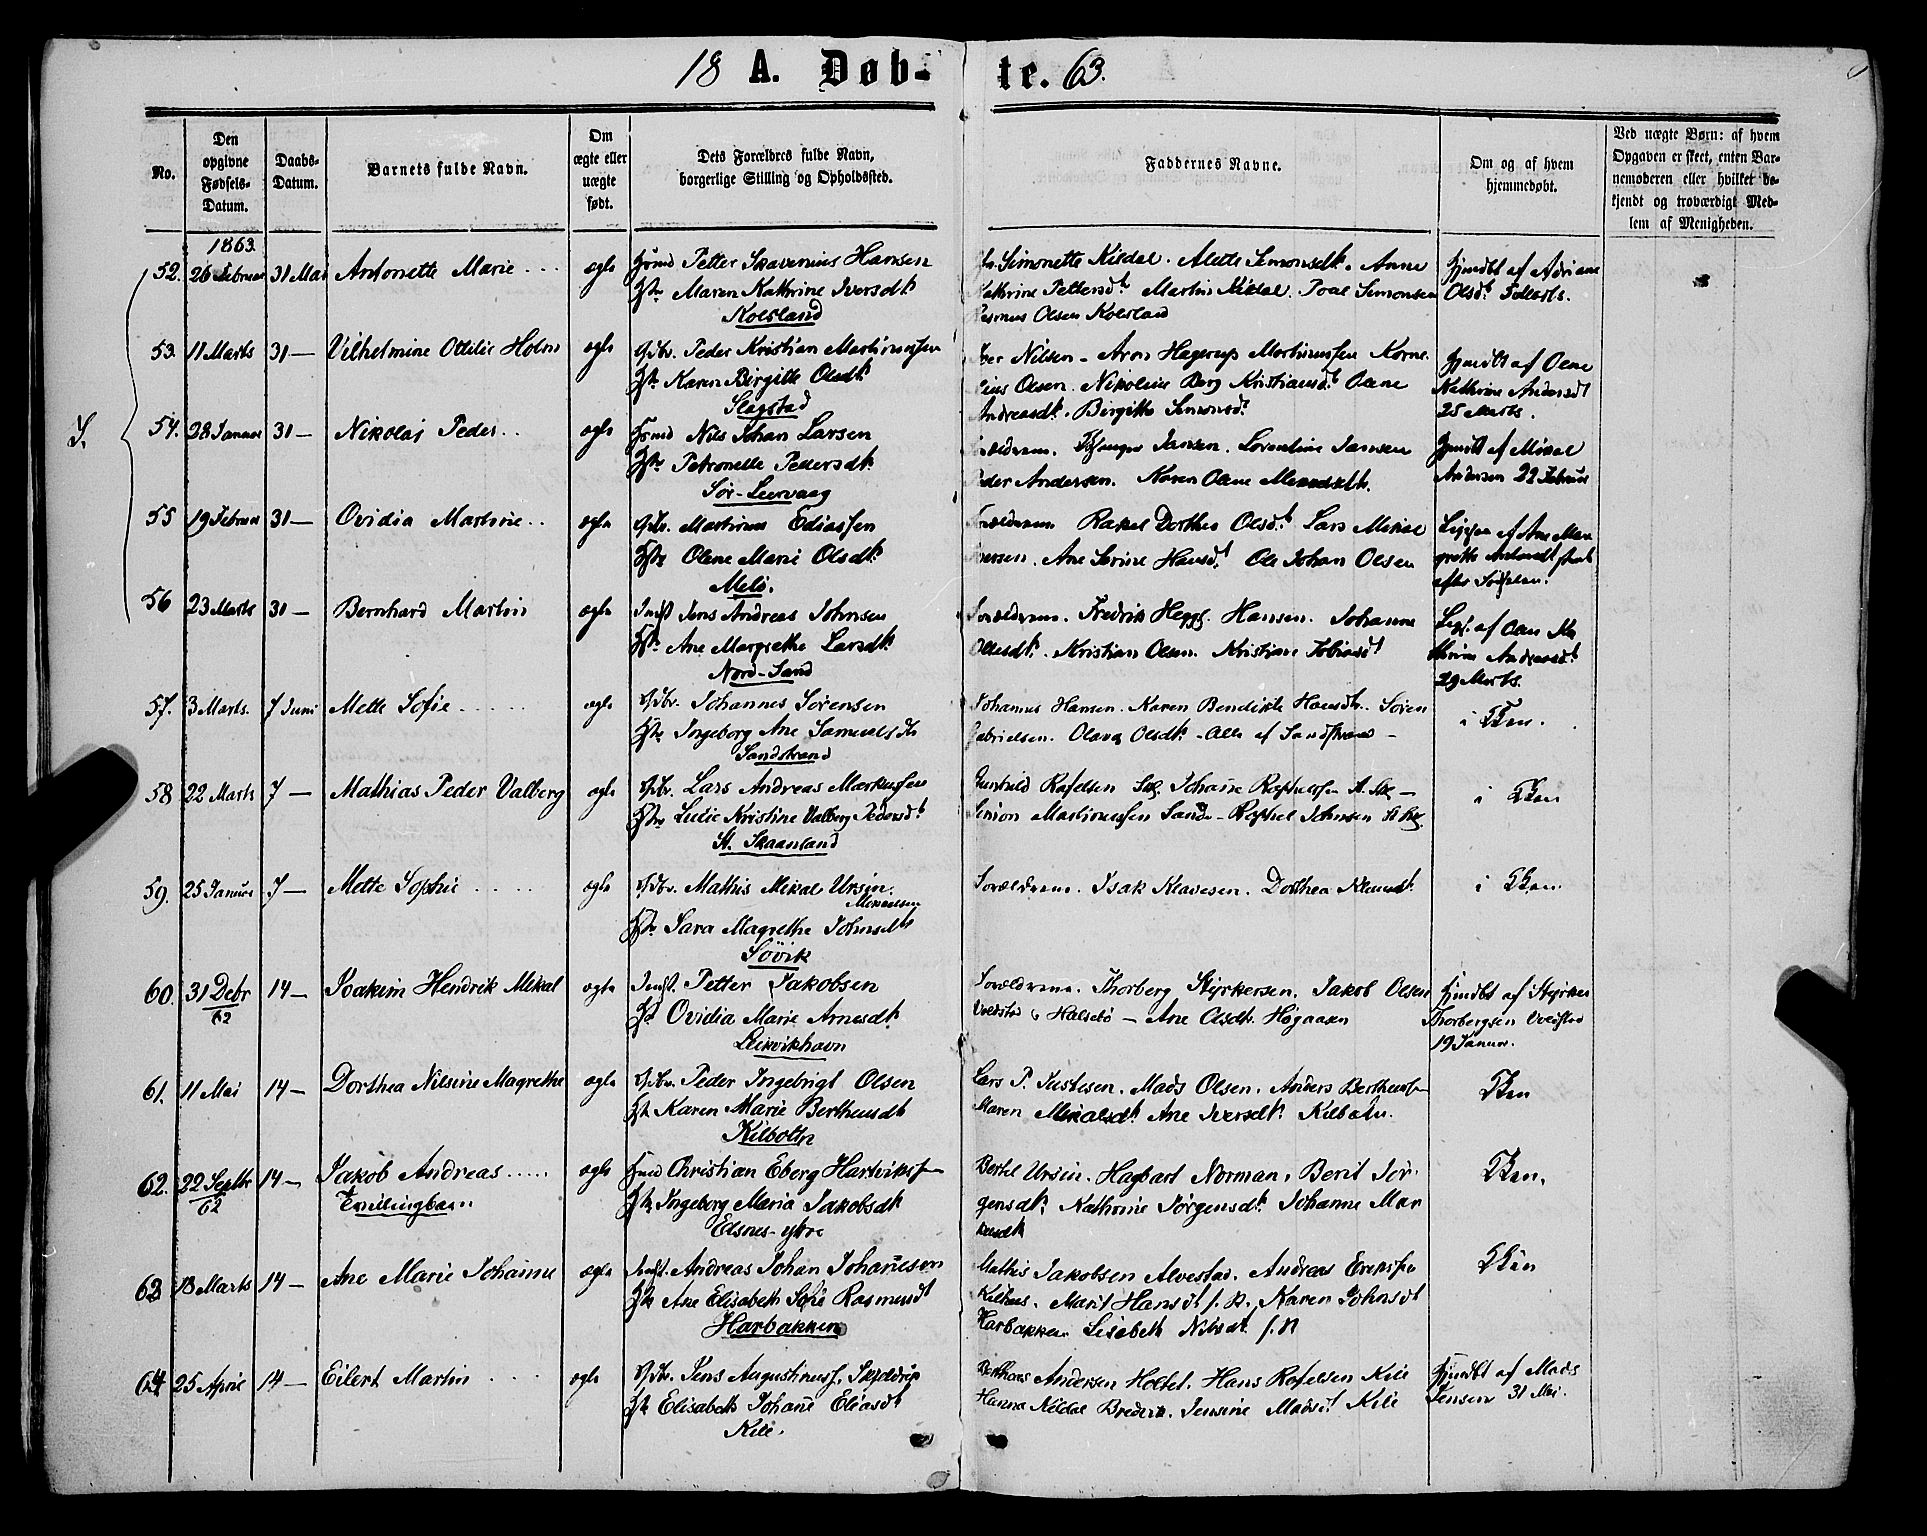 18 A. Døb- te. 63.
No.
Den opgivne Fødsels-Datum.
Daabs-Datum.
Barnets fulde Navn.
Om ægte eller uægte født.
Dets Forældres fulde Navn, borgerlige Stilling og Opholdssted.
Faddernes Navne.
Om og af hvem hjemmedøbt.
Ved uægte Børn: af hvem
Opgaven er skeet, enten Bar-
nemoderen eller hvilket be-
kjendt og troværdigt Med-
lem af Menigheden.
1863.
52. 26 Februar 31 Mai Antonette Marie ... ægte Petter Skavenius Hansen
Maren Kathrine Iversdt
Kolsland
Simonette Nisdal. Alette Simonsdt. Anne
Kathrine Pettersdt Martin Nisdal. Poal Simonsen
Rasmus Olsen Kolsland
Hjmdbt af Adriane
Olsdt 5 Marts.
53. 11 Marts 31 — Vilhelmine Ottilie Holm ægte Gdbr. Peder Kristian Martinussen
Karen Birgitte Olsdt.
Slagstad
Nilsen - Aron Hagerup Martinussen Korne
lius Olsen. Nikoline Berg Kristiansdt Olene
Andreasdt. Birgitte Simonsdt
Hjmdbt af Olene
Kathrine Andersdt
25 Marts.
S.
54. 28 Januar 31 — Nikolai Peder .. ægte Nils Johan Larsen
Petronelle Pedersdt.
Sør-Leervaag
Forældrene. Jansen. Lorentine Jansen
Peder Andersen. Karen Olene
Hjmdbt af Mikal
Andersen 22 Februar
55 19 Februar 31 — Ovidia Martine .. ægte Gdbr. Martinus Ediassen
Olene Marie Olsdt.
Melö.
Forældrene Rakel Dorthea Olsdt. Lars Mikal
Iversen. Ane Serine Hansdt. Ole Johan Olsen
af Ane Mar
grethe
56 23 Marts 31 — Bernhard Martin ægte Inst Jens Andreas Johnsen
Ane Margrethe Larsdt.
Nord-Sand
Forældrene. Fredrik Hegg. Hansen. Johanna
Kristian Olsen. Kristiane Tobiasdt
af Olen Ka
thrine Andreasdt.
29 Marts.
57. 3 Marts. 7 Juni Mette Sofie ..... ægte Gdbr. Johannes Sørensen
Ingeborg Ane Samuelsdt
Sandstrand
Johannes Hansen. Karen Bendikte Hansdt. Søren
Gabrielsen. Olava Olsdt. - Alle af Sandstrand -
i Kken.
58 22 Marts 7 — Mathias Peder Valberg ægte Gdbr. Lars Andreas Markussen
Lulie Kristine Valberg Pedersdt
St. Skaanland
Rafelsen
Simon Martinussen Sande - Raphel Johnsen
i Kken
59. 25 Januar 7 — Mette Sophie ..... ægte Gdbr. Mathis Mikal Ursin.
Mikaelsen
Sara Magrethe Johnsdt
Søvik
Forældrene. Isak Klavesen. Dorthea
i Kken.
60. 31 Debr 62 14 — Joakim Hendrik Mikal ægte Inst. Petter Jakobsen
Ovidia Marie Arnesdt.
Leikvikhavn
Forældrene. Thorberg Styrkersen. Jakob Olsen
Voldstad Halsebö - Ane Olsdt. Høgaasen
Hjmdbt af Styrker
Thorbergsen Voldstad
19 Januar.
61. 11 Mai 14 — Dorthea Nilsine Magrethe ægte Gdbr. Peder Ingebrigt Olsen
Karen Marie Bertheusdt
Kilbotn
Lars P. Justesen. Mads Olsen. Anders Bertheussen
Maren Mikalsdt. Ane Iversdt. Kilbotn.
Kken
62. 22 Septbr 62 14 — Jakob Andreas ..... ægte Christian Eberg Hartviksen
Tvillingbarn
Ingeborg Maria Jakobsdt
Elsnes-ytre
Berthel Ursin. Hagbart Norman. Berit Jør-
gensdt. Kathrine Jørgensdt. Johanne Mar
kusdt
Kken.
63 13 Marts 14 — Ane Marie Johanne ægte Inst. Andreas Johan Johannesen
Ane Elisabeth Sofie Rasmusdt
Harbakken
Mathis Jakobsen Alvestad. Andreas Eriksen
Kilhus. Marit Hansdt. Karen Johnsdt
Harbakken Lisabeth Nilsdt.
Kken
64 25 April 14 — Eilert Martin .... ægte Gdbr. Jens Augustinusf. Skjeldrup
Elisabeth Johane Eliasdt
Kile.
Andersen Holtet. Hans Rafelsen Kile
Hanna Nildal Jensine Madsdt Kile
Hjmdbt af Mads
Jensen 31 Mai.